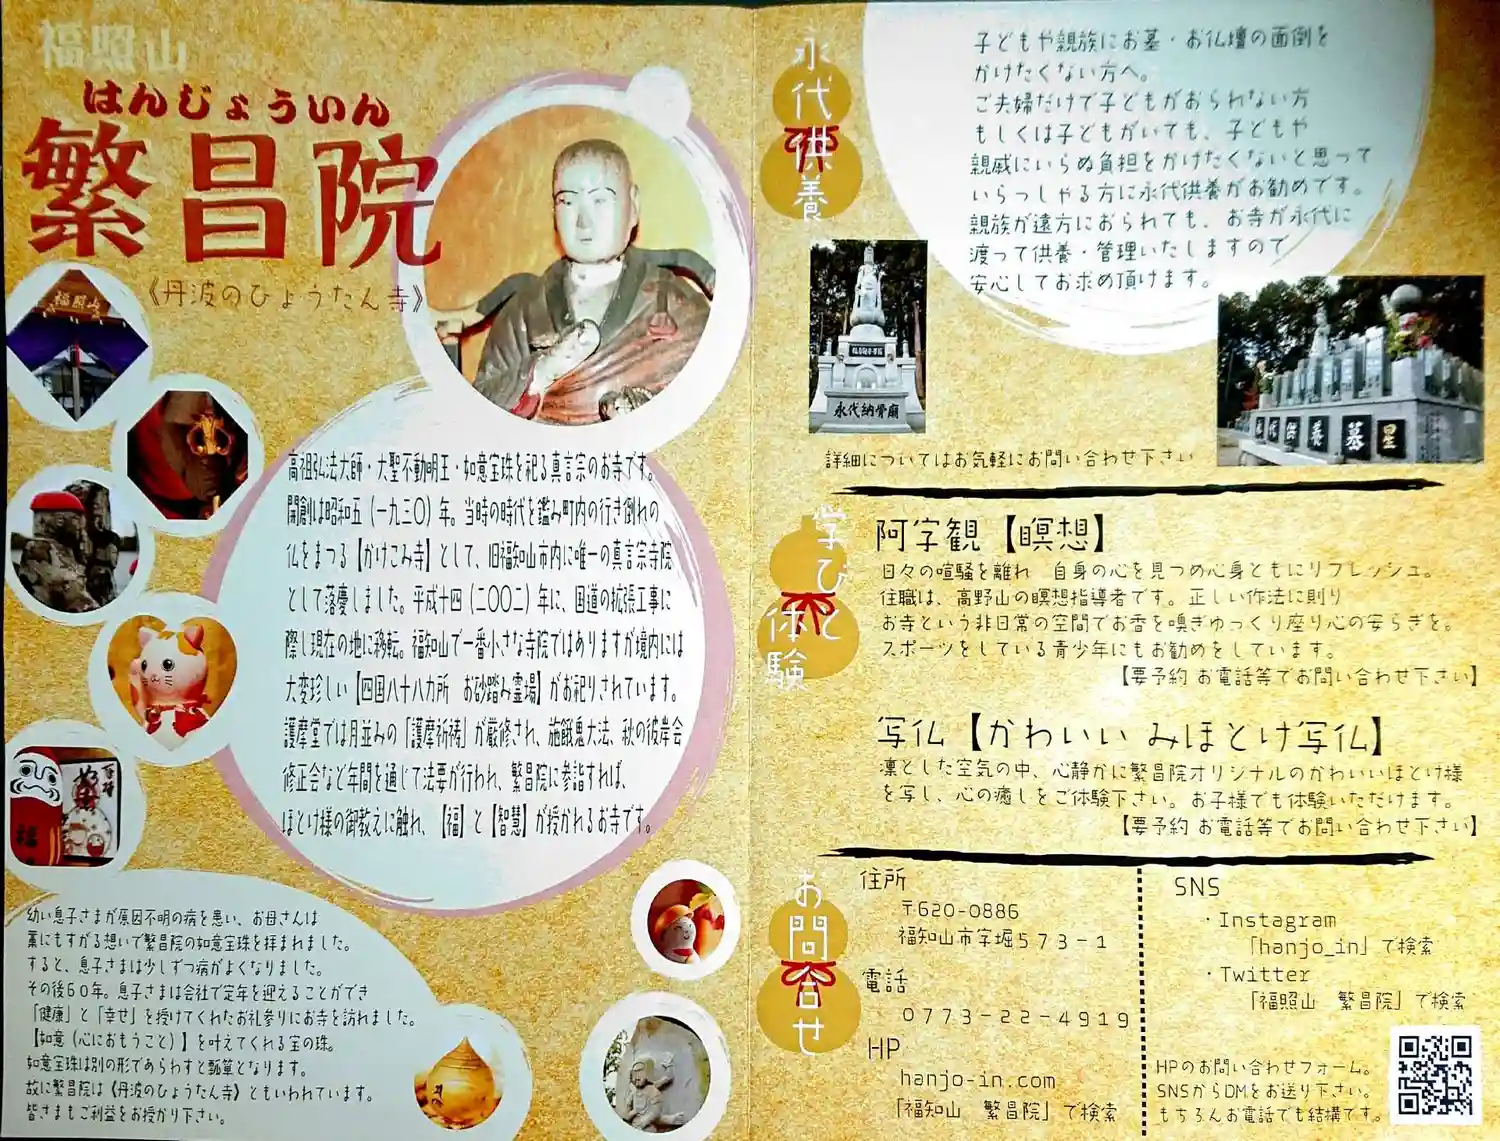 福照山
はんじょういん
繁昌院
《丹波のひょうたん寺》
福照山
高祖弘法大師・大聖不動明王・如意宝珠を祀る真言宗のお寺です。
開創は昭和五(一九三〇)年。当時の時代を鑑み町内の行き倒れの
仏をまつる【かけこみ寺】として、旧福知山市内に唯一の真言宗寺院
として落慶しました。平成十四(二〇〇二)年に、国道の拡張工事に
際し現在の地に移転。福知山で一番小さな寺院ではありますが境内には
大変珍しい【四国八十八カ所 お砂踏み霊場】がお祀りされています。
護摩堂では月並みの「護摩祈祷」が厳修され、施餓鬼大法、秋の彼岸会
修正会など年間を通じて法要が行われ、繁昌院に参詣すれば、
ほとけ様の御教えに触れ、【福】と【智慧】が授かれるお寺です。
福
幼い息子さまが原因不明の病を患い、お母さんは
藁にもすがる想いで繁昌院の如意宝珠を拝まれました。
すると、息子さまは少しずつ病がよくなりました。
その後60年。息子さまは会社で定年を迎えることができ
「健康」と「幸せ」を授けてくれたお礼参りにお寺を訪れました。
【如意(心におもうこと)】を叶えてくれる宝の珠。
如意宝珠は別の形であらわすと瓢箪となります。
故に繁昌院は《丹波のひょうたん寺》ともいわれています。
皆さまもご利益をお授かり下さい。
永代供養
子どもや親族にお墓・お仏壇の面倒を
かけたくない方へ。
ご夫婦だけで子どもがおられない方
もしくは子どもがいても、子どもや
親戚にいらぬ負担をかけたくないと思って
いらっしゃる方に永代供養がお勧めです。
親族が遠方におられても、お寺が永代に
渡って供養・管理いたしますので
安心してお求め頂けます。
永代納骨廟
永代供養墓
詳細についてはお気軽にお問い合わせ下さい
学びと体験
阿字観【瞑想】
日々の喧騒を離れ 自身の心を見つめ心身ともにリフレッシュ。
住職は、高野山の瞑想指導者です。正しい作法に則り
お寺という非日常の空間でお香を嗅ぎゆっくり座り心の安らぎを。
スポーツをしている青少年にもお勧めをしています。
【要予約 お電話等でお問い合わせ下さい】
写仏【かわいい みほとけ写仏】
凛とした空気の中、心静かに繁昌院オリジナルのかわいいほとけ様
を写し、心の癒しをご体験下さい。お子様でも体験いただけます。
【要予約 お電話等でお問い合わせ下さい】
お問合せ
住所
〒620-0886
福知山市字堀573-1
電話
0773-22-4919
HP
hanjo-in.com
「福知山 繁昌院」で検索
SNS
・Instagram
「hanjo_in」で検索
・Twitter
「福照山 繁昌院」で検索
HPのお問い合わせフォーム。
SNSからDMをお送り下さい。
もちろんお電話でも結構です。